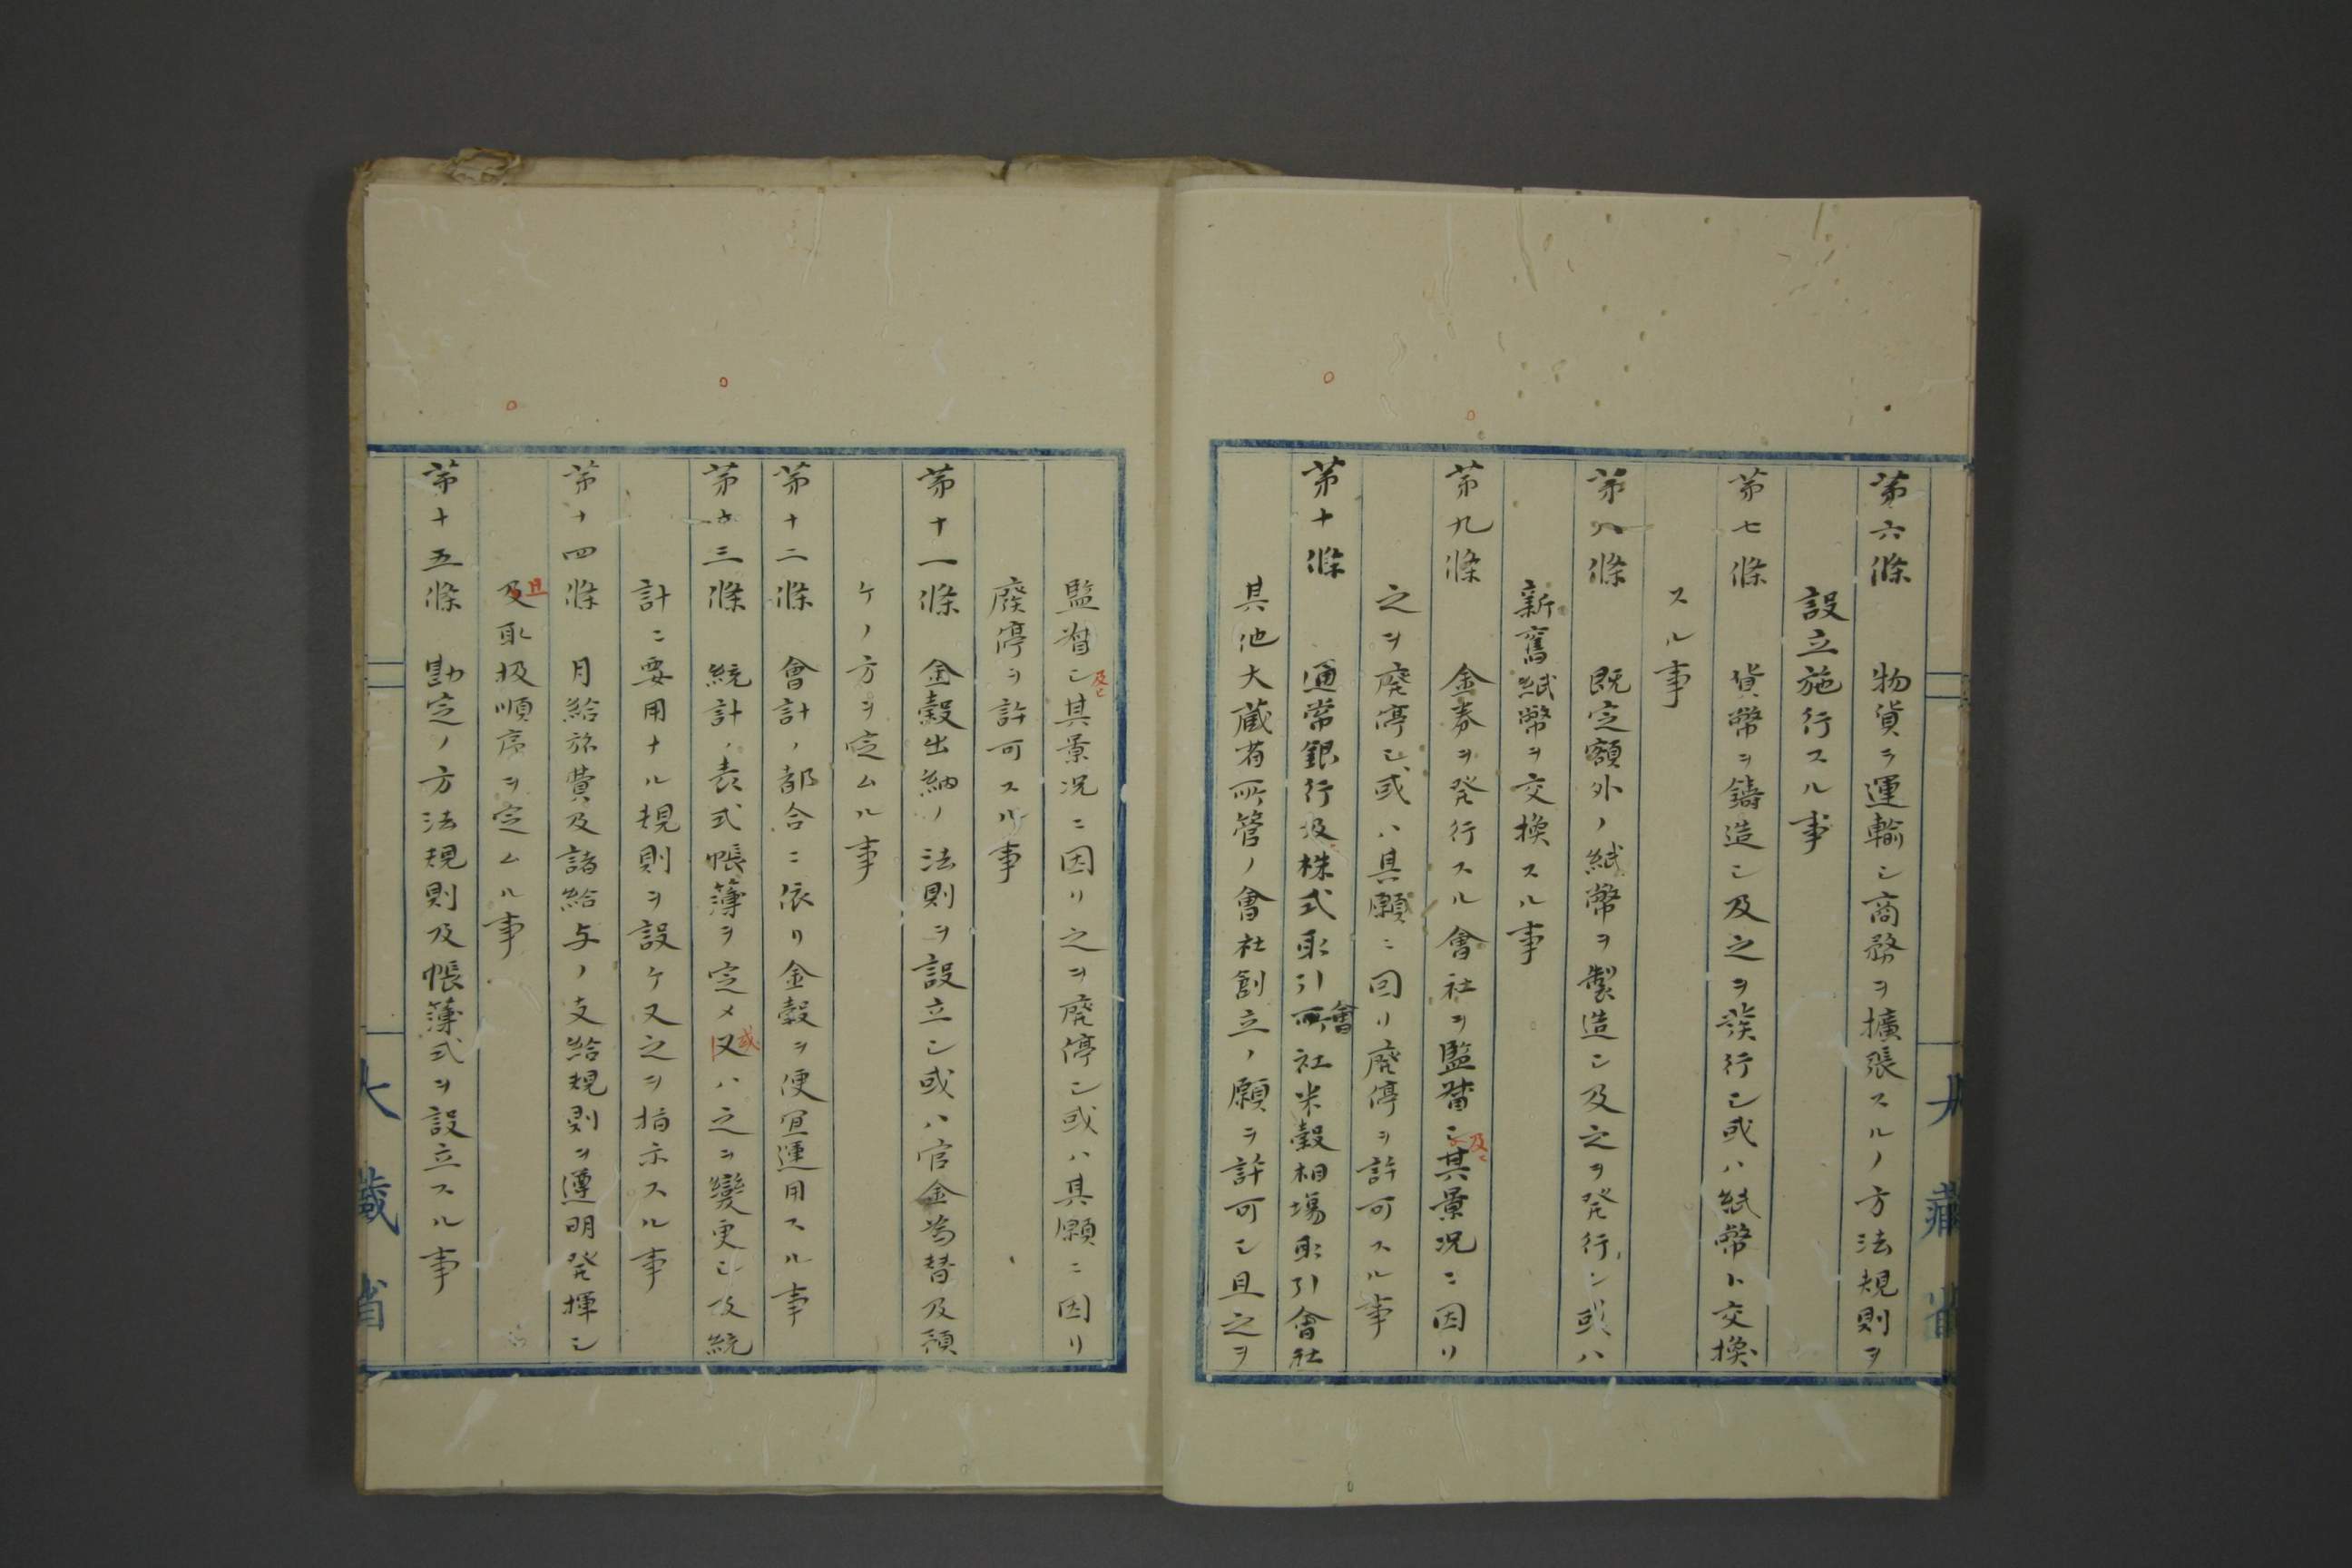 第六條　物貨ヲ運輸シ商務ヲ擴張スルノ方法規則ヲ
設立施行スル事
第七條　貨幣ヲ鑄造シ及之ヲ發行シ或ハ紙幣ト交換
スル事
第八條　既定額外ノ紙幣ヲ製造シ及之ヲ発行シ或ハ
新舊紙幣ヲ交換スル事
第九條　金券ヲ発行スル會社ヲ監督シ其景况ニ因リ
及ヒ
之ヲ廃停シ或ハ其願ニ因リ廃停ヲ許可スル事
第十條　通常銀行及株式取引所社米穀相場取引會社
會
其他大蔵省所管ノ會社創立ノ願ヲ許可シ且之ヲ
大藏省
監督シ其景况ニ因リ之ヲ廃停シ或ハ其願ニ因リ
及ヒ
廢停ヲ許可スル事
第十一條　金穀出納ノ法則ヲ設立シ或ハ官金為替及預
ケノ方ヲ定ムル事
第十二條　會計ノ都合ニ依リ金穀ヲ便宜運用スル事
第十三條　統計ノ表式帳簿ヲ定メ又ハ之ヲ變更シ及統
或
計ニ要用ナル規則ヲ設ケ又之ヲ指示スル事
第十四條　月給旅費及諸給与ノ支給規則ヲ遵明発揮シ
及取扱順序ヲ定ムル事
且
第十五條　勘定ノ方法規則及帳簿式ヲ設立スル事
大藏省